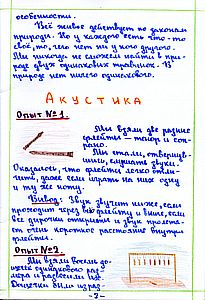 особенности.
Всё живое действует по законам
природы. Но у каждого есть что-то
своё, то, чего нет ни у кого другого.
Мы никогда не сможем найти в при-
роде двух одинаковых травинок. В
природе нет ничего одинакового.
АКУСТИКА
Опыт №1.
Мы взяли две разные
флейты - тенор и сопра-
но.
Мы стали, отвернув-
шись, слушать звуки.
Оказалось, что флейты легко отли-
чить, даже если играть на них одну
и ту же ноту.
Вывод: Звук звучит ниже, если
проходит через всю флейту и выше, если
все дырочки открыты и звук пролета-
ет очень короткое расстояние внутри
флейты.
Опыт №2.
Мы взяли восемь до-
щечек одинакового раз-
мера и развесили их.
Дощечки были
- 2 -